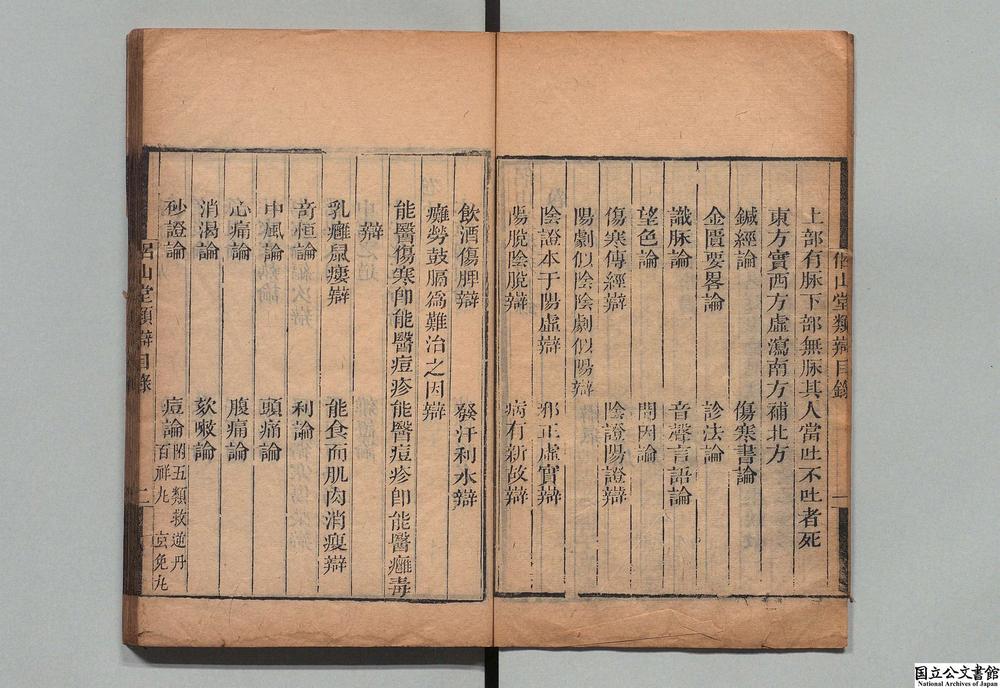 上部有脉下部無脉其人當吐不吐者死
東方實西方虛瀉南方補北方
鍼經論 傷寒書論
金匱要畧論 診法論
識脉論 音聲言語論
望色論 問因論
傷寒傳經辯 陰證陽證辯
陽劇似陰陰劇似陽辯
陰證本于陽虛辯 邪正虛實辯
陽脫陰脫辯 病有新故辯
山堂類辯目錄 一
飲酒傷脾辯 發汗利水辯
癰勞鼓膈爲難治之因辯
能醫傷寒卽能醫痘疹能醫痘疹卽能醫癰毒
辯
乳癰鼠瘻辯 能食而肌肉消瘦辯
奇恒論 利論
中風論 頭痛論
心痛論 腹痛論
消渴論 欬嗽論
痧證論 痘論 附五類救逆丹
百祥丸 宣兔丸
山堂類辯目錄 二
国立公文書館
National Archives of Japan